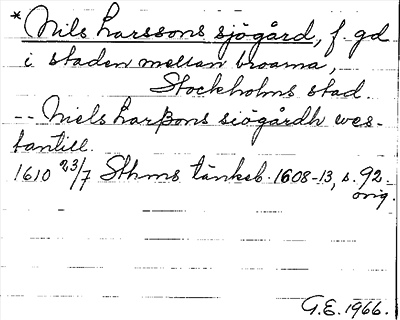 * Nils Larssons sjögård, f. gd
i staden mellan broarna,
Stockholms stad.
-- Niels Larßons siögårdh wes-
tantill.
1610 23/7 Sthms tänkeb. 1608-13, s. 92.
orig.
G.E. 1966.